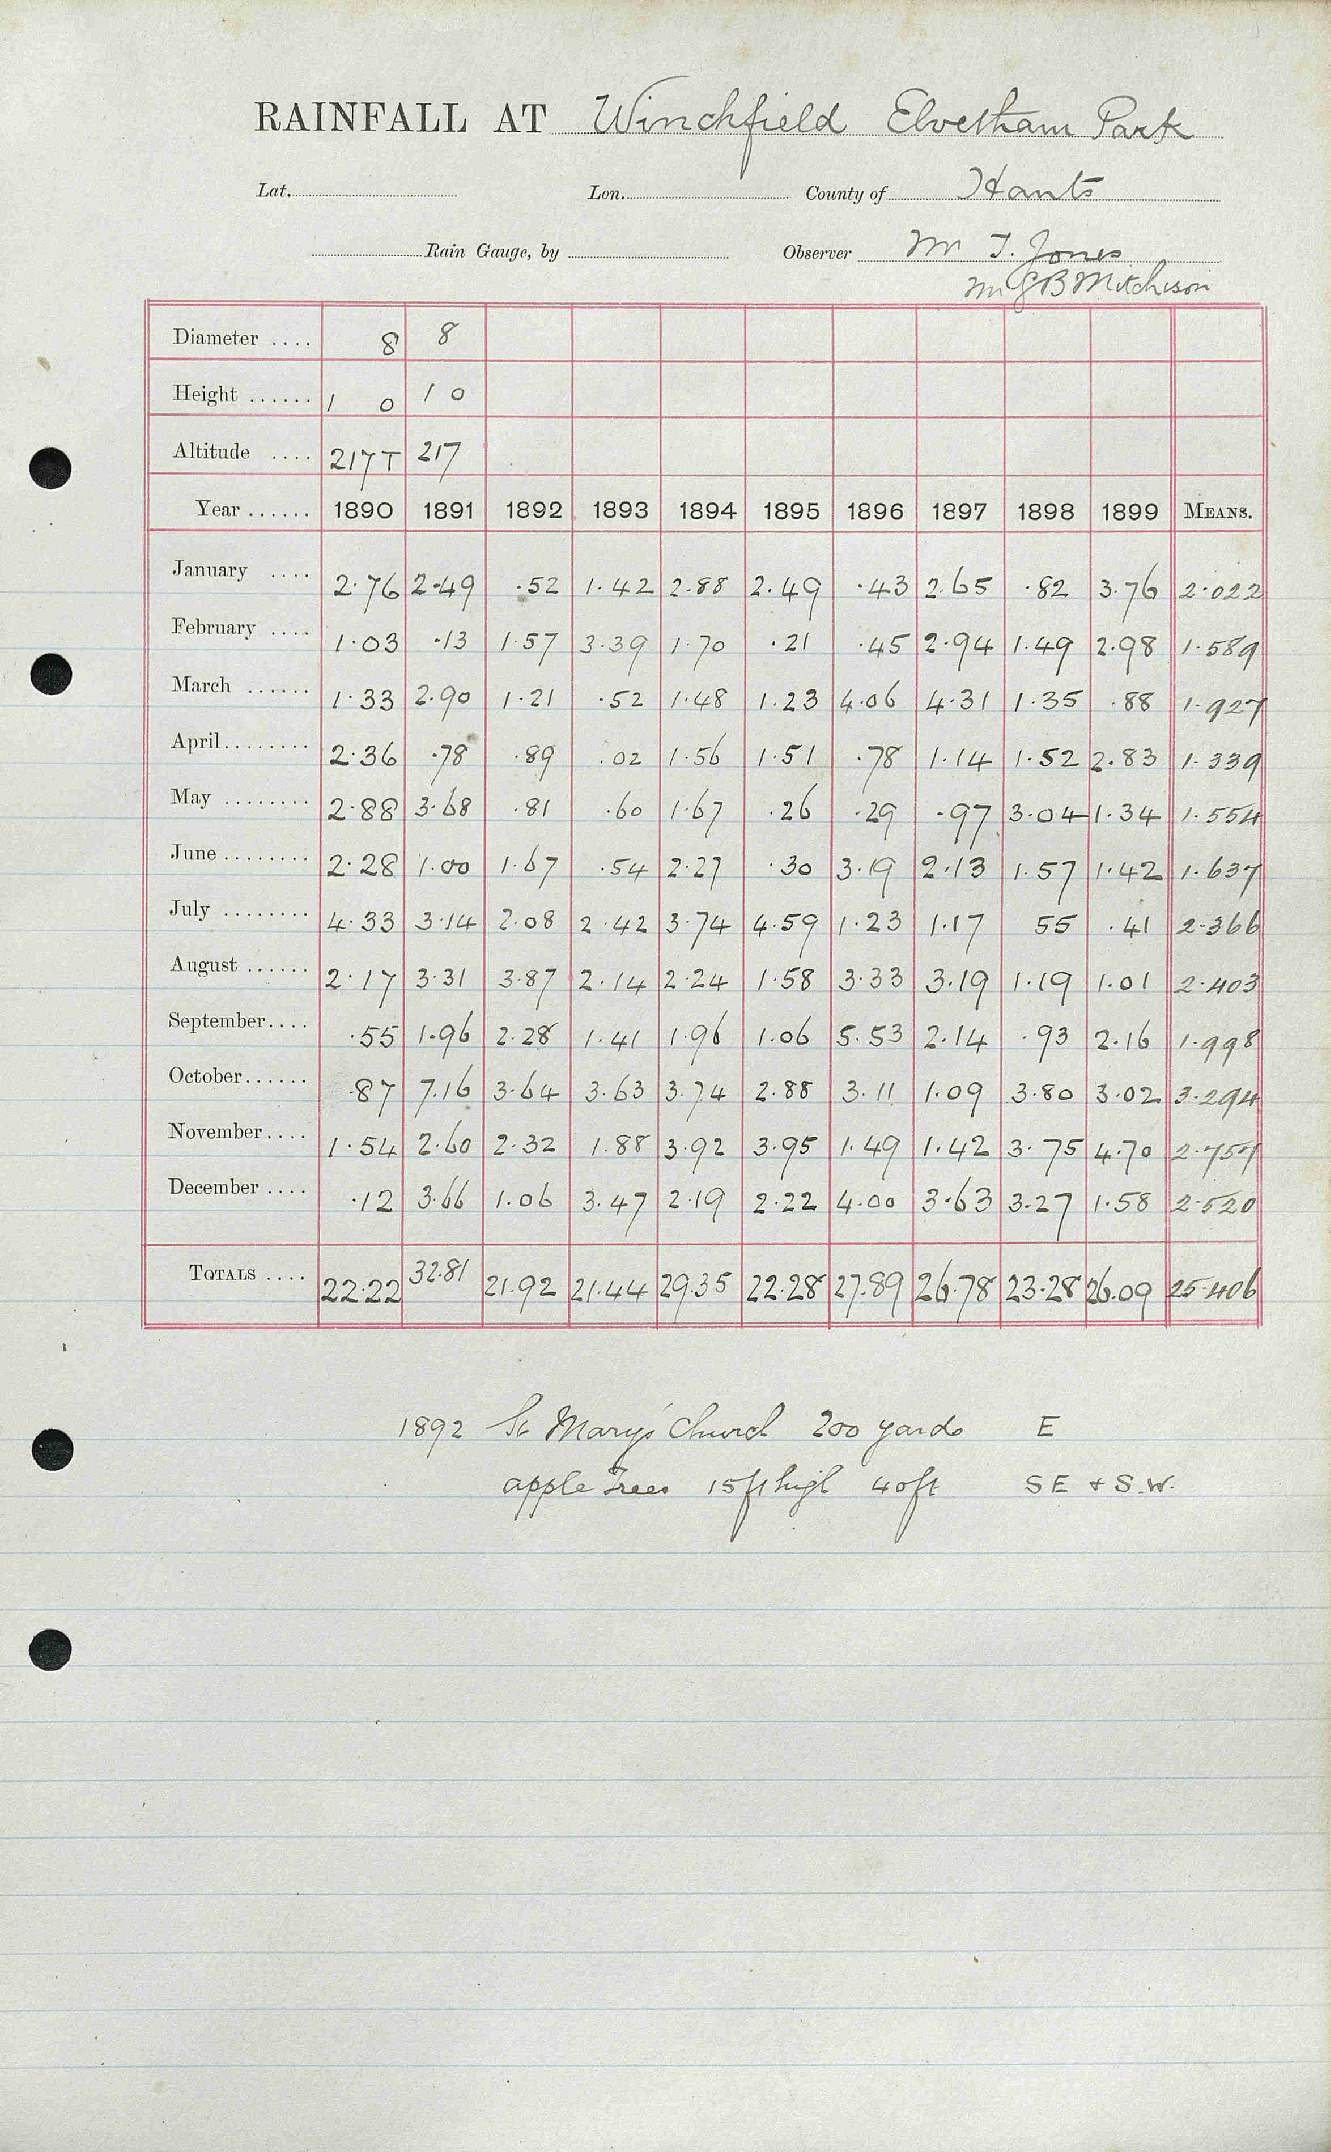 RAINFALL AT Winchfield Elvetham Park
Lat. Lon. County of Hants
Rain Gauge, by Observer Mr T. Jones
Mr G B Mitchison
Diameter .... 8 8
Height ...... 1 0 1 0
Altitude .... 217 T 217
Year ...... 1890 1891 1892 1893 1894 1895 1896 1897 1898 1899 MEANS.
January .... 2.76 2.49 .52 1.42 2.88 2.49 .43 2.65 .82 3.76 2.022
February .... 1.03 .13 1.57 3.39 1.70 .21 .45 2.94 1.49 2.98 1.589
March ...... 1.33 2.90 1.21 .52 1.48 1.23 4.06 4.31 1.35 .88 1.927
April........ 2.36 .78 .89 .02 1.56 1.51 .78 1.14 1.52 2.83 1.339
May ........ 2.88 3.68 .81 .60 1.67 .26 .29 .97 3.04 1.34 1.554
June ........ 2.28 1.00 1.67 .54 2.27 .30 3.19 2.13 1.57 1.42 1.637
July ........ 4.33 3.14 2.08 2.42 3.74 4.59 1.23 1.17 55 .41 2.366
August ...... 2.17 3.31 3.87 2.14 2.24 1.58 3.33 3.19 1.19 1.01 2.403
September.... .55 1.96 2.28 1.41 1.96 1.06 5.53 2.14 .93 2.16 1.998
October...... .87 7.16 3.64 3.63 3.74 2.88 3.11 1.09 3.80 3.02 3.294
November.... 1.54 2.60 2.32 1.88 3.92 3.95 1.49 1.42 3.75 4.70 2.757
December .... .12 3.66 1.06 3.47 2.19 2.22 4.00 3.63 3.27 1.58 2.520
TOTALS .... 22.22 32.81 21.92 21.44 29.35 22.28 27.89 26.78 23.28 26.09 25.406
1892 St Mary's Church 200 yards E
apple Trees 15ft high 40ft SE + S.W.